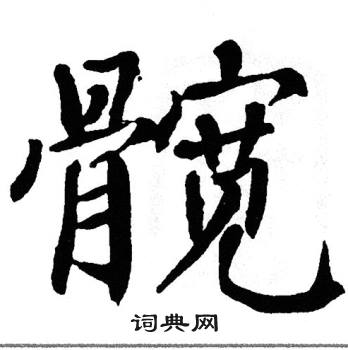 髋
词典网